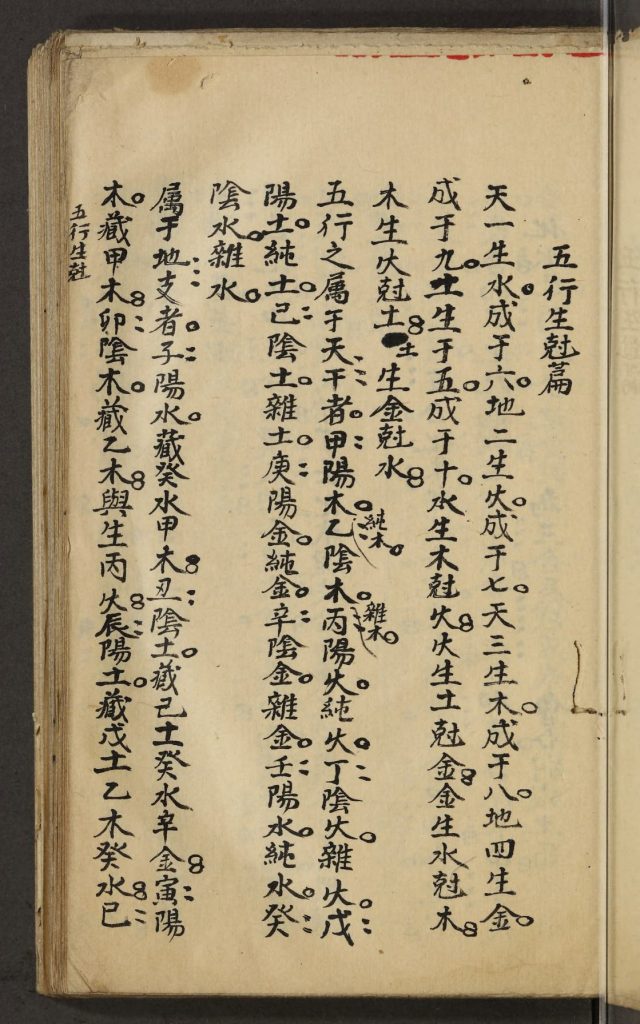 五行生尅篇
天一生水。成于六。地二生火。成于七。天三生木。成于八。地四生金。
成于九。土生于五。成于十。水生木尅火。火生土尅金。金生水尅木。
木生火尅土。土生金尅水。
五行之屬于天干者。甲陽木。純木。乙陰木。雜木。丙陽火。純火。丁陰火。雜火。戊
陽土。純土。己陰土。雜土。庚陽金。純金。辛陰金。雜金。壬陽水。純水。癸
陰水。雜水。
屬于地支者。子陽水。藏癸水甲木。丑陰土。藏己土癸水辛金。寅陽
木。藏甲木。卯陰木。藏乙木。與生丙火。辰陽土。藏戊土乙木癸水。巳
五行生尅